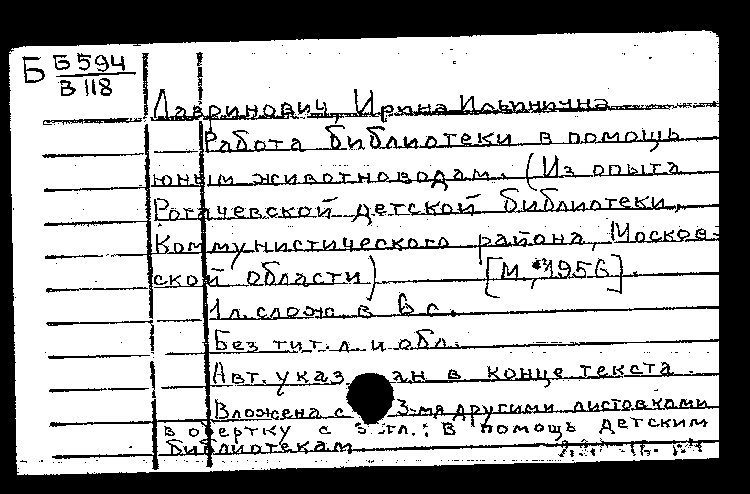 Б Б594
В118
Лавринович, Ирина Ильинична
Работа библиотеки в помощь
юным животноводам. (Из опыта
Рогачевской детской библиотеки,
Коммунистического района, Москов-
ской области) [М., 1956].
1 л. слож. в 6 с.
Без тит. л. и обл.
Авт. указан в конце текста.
Вложена с 3-мя другими листовками
в обертку с загл.: В помощь детским
библиотекам